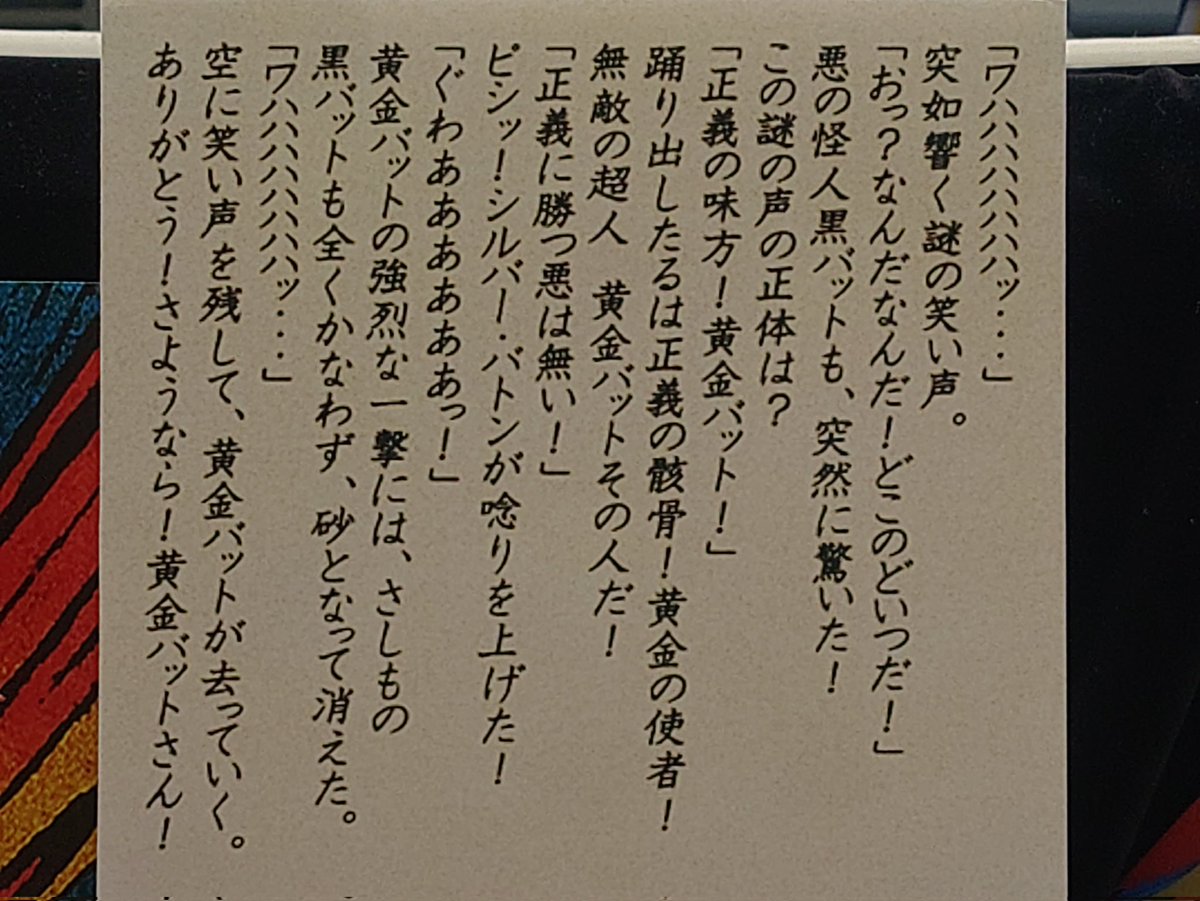 「ワハハハハハハハッ・・・」
突如響く謎の笑い声。
「おっ？なんだなんだ！どこのどいつだ！」
悪の怪人黒バットも、突然に驚いた！
この謎の声の正体は？
「正義の味方！黄金バット！」
踊り出したるは正義の骸骨！黄金の使者！
無敵の超人　黄金バットその人だ！
「正義に勝つ悪は無い！」
ピシッ！シルバー・バトンが唸りを上げた！
「ぐわああああああっ！」
黄金バットの強烈な一撃には、さしもの
黒バットも全くかなわず、砂となって消えた。
「ワハハハハハハハッ・・・」
空に笑い声を残して、黄金バットが去っていく。
ありがとう！さようなら！黄金バットさん！